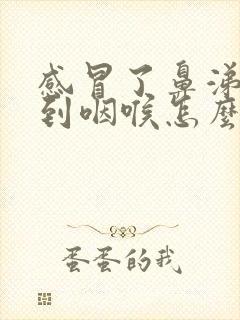 感冒了鼻涕
到咽喉怎麼
蛋蛋的我